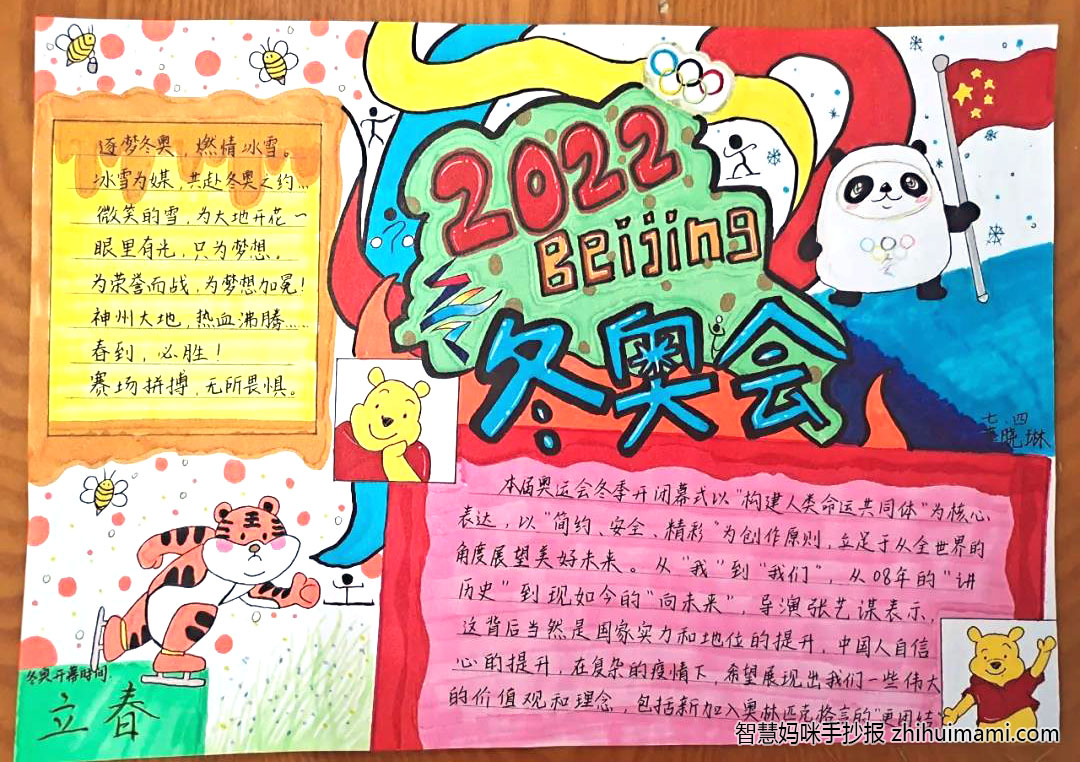 2022
Beijing
冬奥会
逐梦冬奥，燃情冰雪。
冰雪为媒，共赴冬奥之约...
微笑的雪，为大地开花~
眼里有光，只为梦想。
为荣誉而战，为梦想加冕！
神州大地，热血沸腾......
春到，必胜！
赛场拼搏，无所畏惧。
七 四
晓琳
本届奥运会冬季开闭幕式以“构建人类命运共同体”为核心
表达，以“简约、安全、精彩”为创作原则，立足于从全世界的
角度展望美好未来。从“我”到“我们”，从08年的“讲
历史”到现如今的“向未来”，导演张艺谋表示，
这背后当然是国家实力和地位的提升，中国人自信
心的提升，在复杂的疫情下，希望展现出我们一些伟大
的价值观和理念，包括新加入奥林匹克格言的“更团结”
冬奥开幕时间：
立春
王
智慧妈咪手抄报 zhihuimami.com